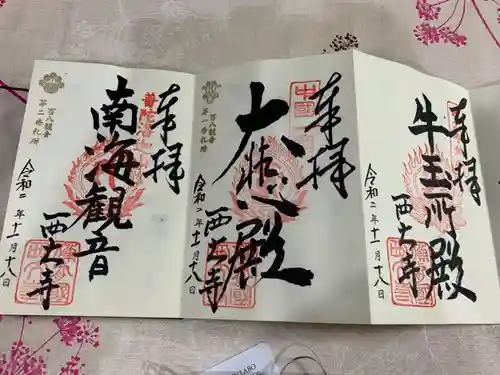 奉拝
牛玉所殿
令和二年十一月十八日
西大寺
奉拝
大悲殿
百八観音
第一番札所
令和二年十一月十八日
西大寺
奉拝
南海観音
百八観音
第二番札所
令和二年十一月十八日
西大寺